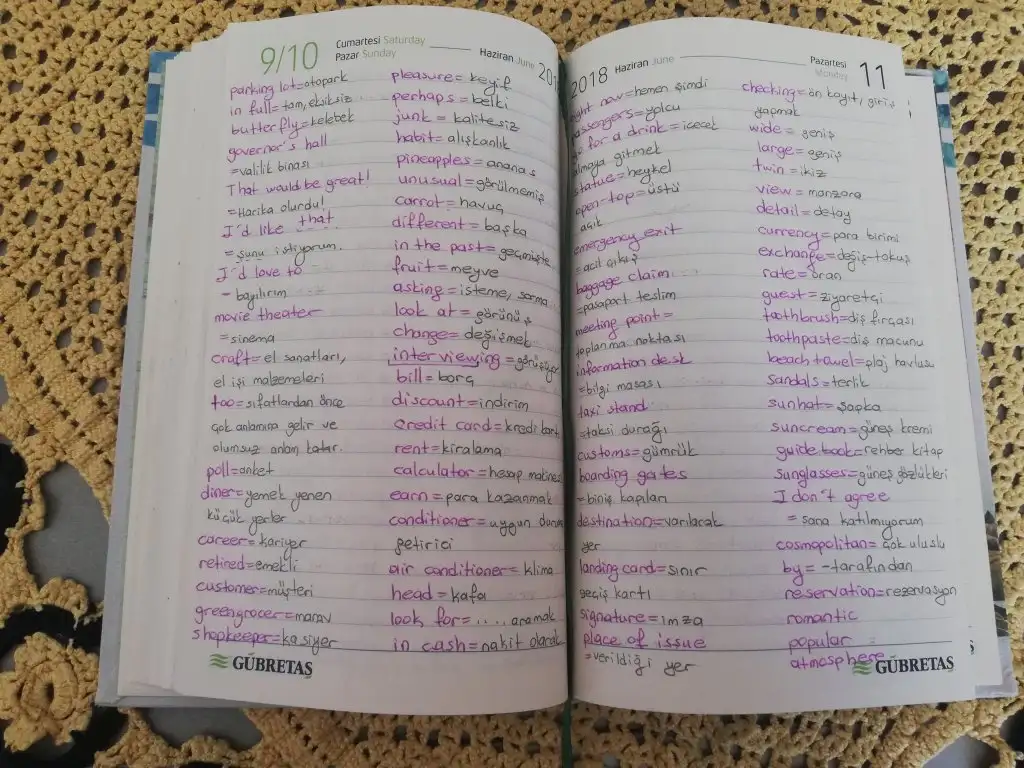 9/10
Cumartesi Saturday
Pazar Sunday
Haziran June 201
parking lot=otopark
in full=tam, eksiksiz
butterfly=kelebek
governor's hall
=valilik binası
That would be great!
=Harika olurdu!
I'd like that
= şunu istiyorum.
I'd love to
= bayılırım
movie theater
=sinema
craft=el sanatları,
el işi malzemeleri
too=sıfatlardan önce
çok anlamına gelir ve
olumsuz anlam katar.
poll=anket
diner=yemek yenen
küçük yerler
career=kariyer
retired=emekli
customer=müşteri
greengrocer=manav
shopkeeper=kasiyer
pleasure= keyif
perhaps = belki
junk = kalitesiz
habit= alışkanlık
pineapples = ananas
unusual =görülmemiş
carrot= havuç
different = başka
in the past= geçmişte
fruit=meyve
asking=isteme, sorma
look at= görünüş
change= değişmek
interviewing =görüşüyor
bill= borç
discount=indirim
credit card=kredi kart
rent= kiralama
calculator=hesap makines
earn = para kazanmak
conditioner= uygun duruma
getirici
air conditioner= klima
head=kafa
look for= .... aramak
in cash=nakit olarak
GÜBRETAŞ
2018 Haziran June
Pazartesi
Monday 11
right now=hemen şimdi
passengers=yolcu
go for a drink = içecek
almaya gitmek
statue=heykel
open-top=üstü
açık
emergency exit
=acil çıkış
baggage claim
=pasaport teslim
meeting point=
toplanma noktası
information desk
=bilgi masası
taxi stand
=taksi durağı
customs=gümrük
boarding gates
=biniş kapıları
destination=varılacak
yer
landing card=sınır
geçiş kartı
signature=imza
place of issue
=verildiği yer
checking=ön kayıt, giriş
yapmak
wide = geniş
large=geniş
twin =ikiz
view=manzara
detail=detay
currency=para birimi
exchange=değiş-tokuş
rate=oran
guest=ziyaretçi
toothbrush=diş fırçası
toothpaste=diş macunu
beach towel=plaj havlusu
sandals=terlik
sunhat=şapka
suncream=güneş kremi
guide book=rehber kitap
sunglasses=güneş gözlükleri
I don't agree
= sana katılmıyorum
cosmopolitan= çok uluslu
by= -tarafından
reservation=rezervasyon
romantic
popular
atmosphere
GÜBRETAŞ